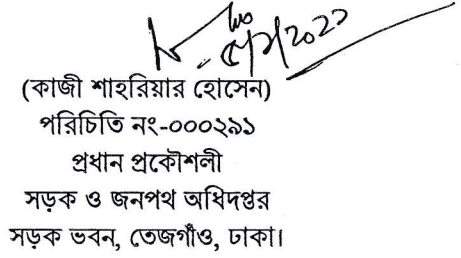 (কাজী শাহরিয়ার হোসেন)
পরিচিতি নং-০০০২৯১
প্রধান প্রকৌশলী
সড়ক ও জনপথ অধিদপ্তর
সড়ক ভবন, তেজগাঁও, ঢাকা।